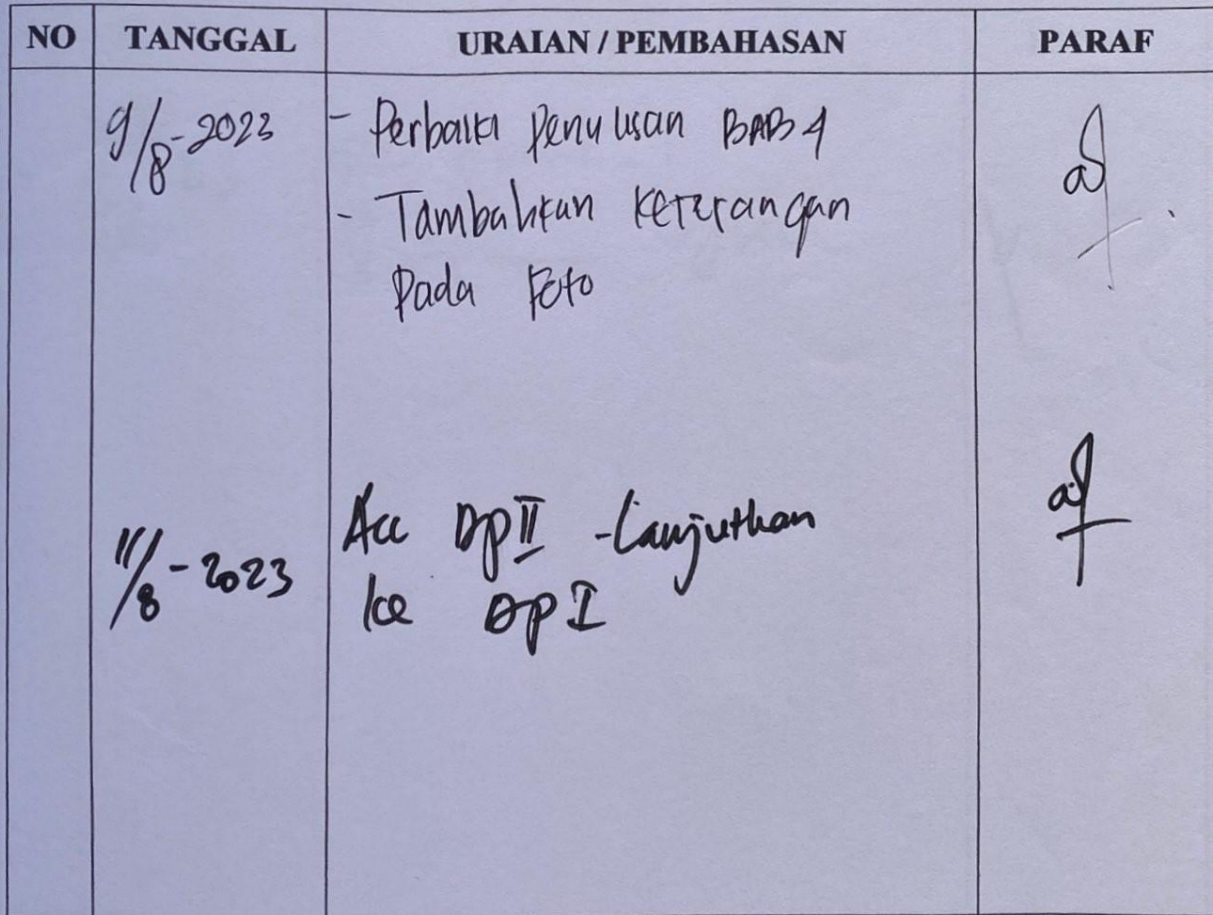 NO TANGGAL URAIAN / PEMBAHASAN PARAF
9/8-2023 - Perbaiki Penulisan BAB 4
- Tambahkan Keterangan
Pada Foto
11/8-2023 Acc DP II - Lanjutkan
ke DP I